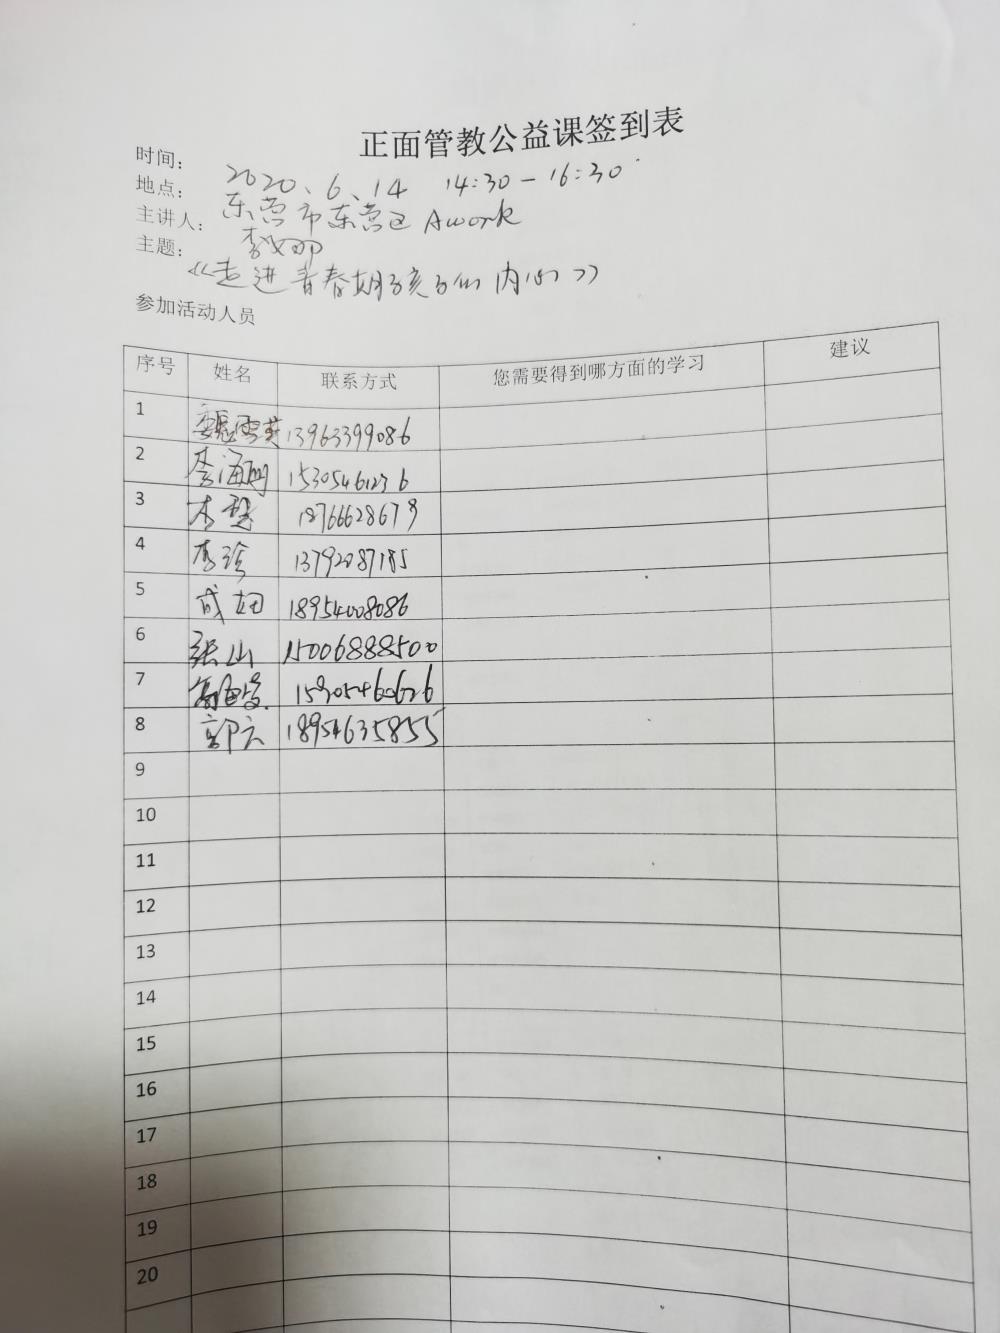 正面管教公益课签到表
时间: 2020、6、14 14:30-16:30
地点: 东营市东营区 Awork
主讲人: 李女那
主题: 《走进青春期孩子的内心》
参加活动人员
序号 姓名 联系方式 您需要得到哪方面的学习 建议
1 13963399086
2 李海 15305461236
3 李 18766628678
4 李珍 13792087185
5 成妞 18954008086
6 张山 15006888500
7 15905460626
8 郭云 18954635855
9
10
11
12
13
14
15
16
17
18
19
20